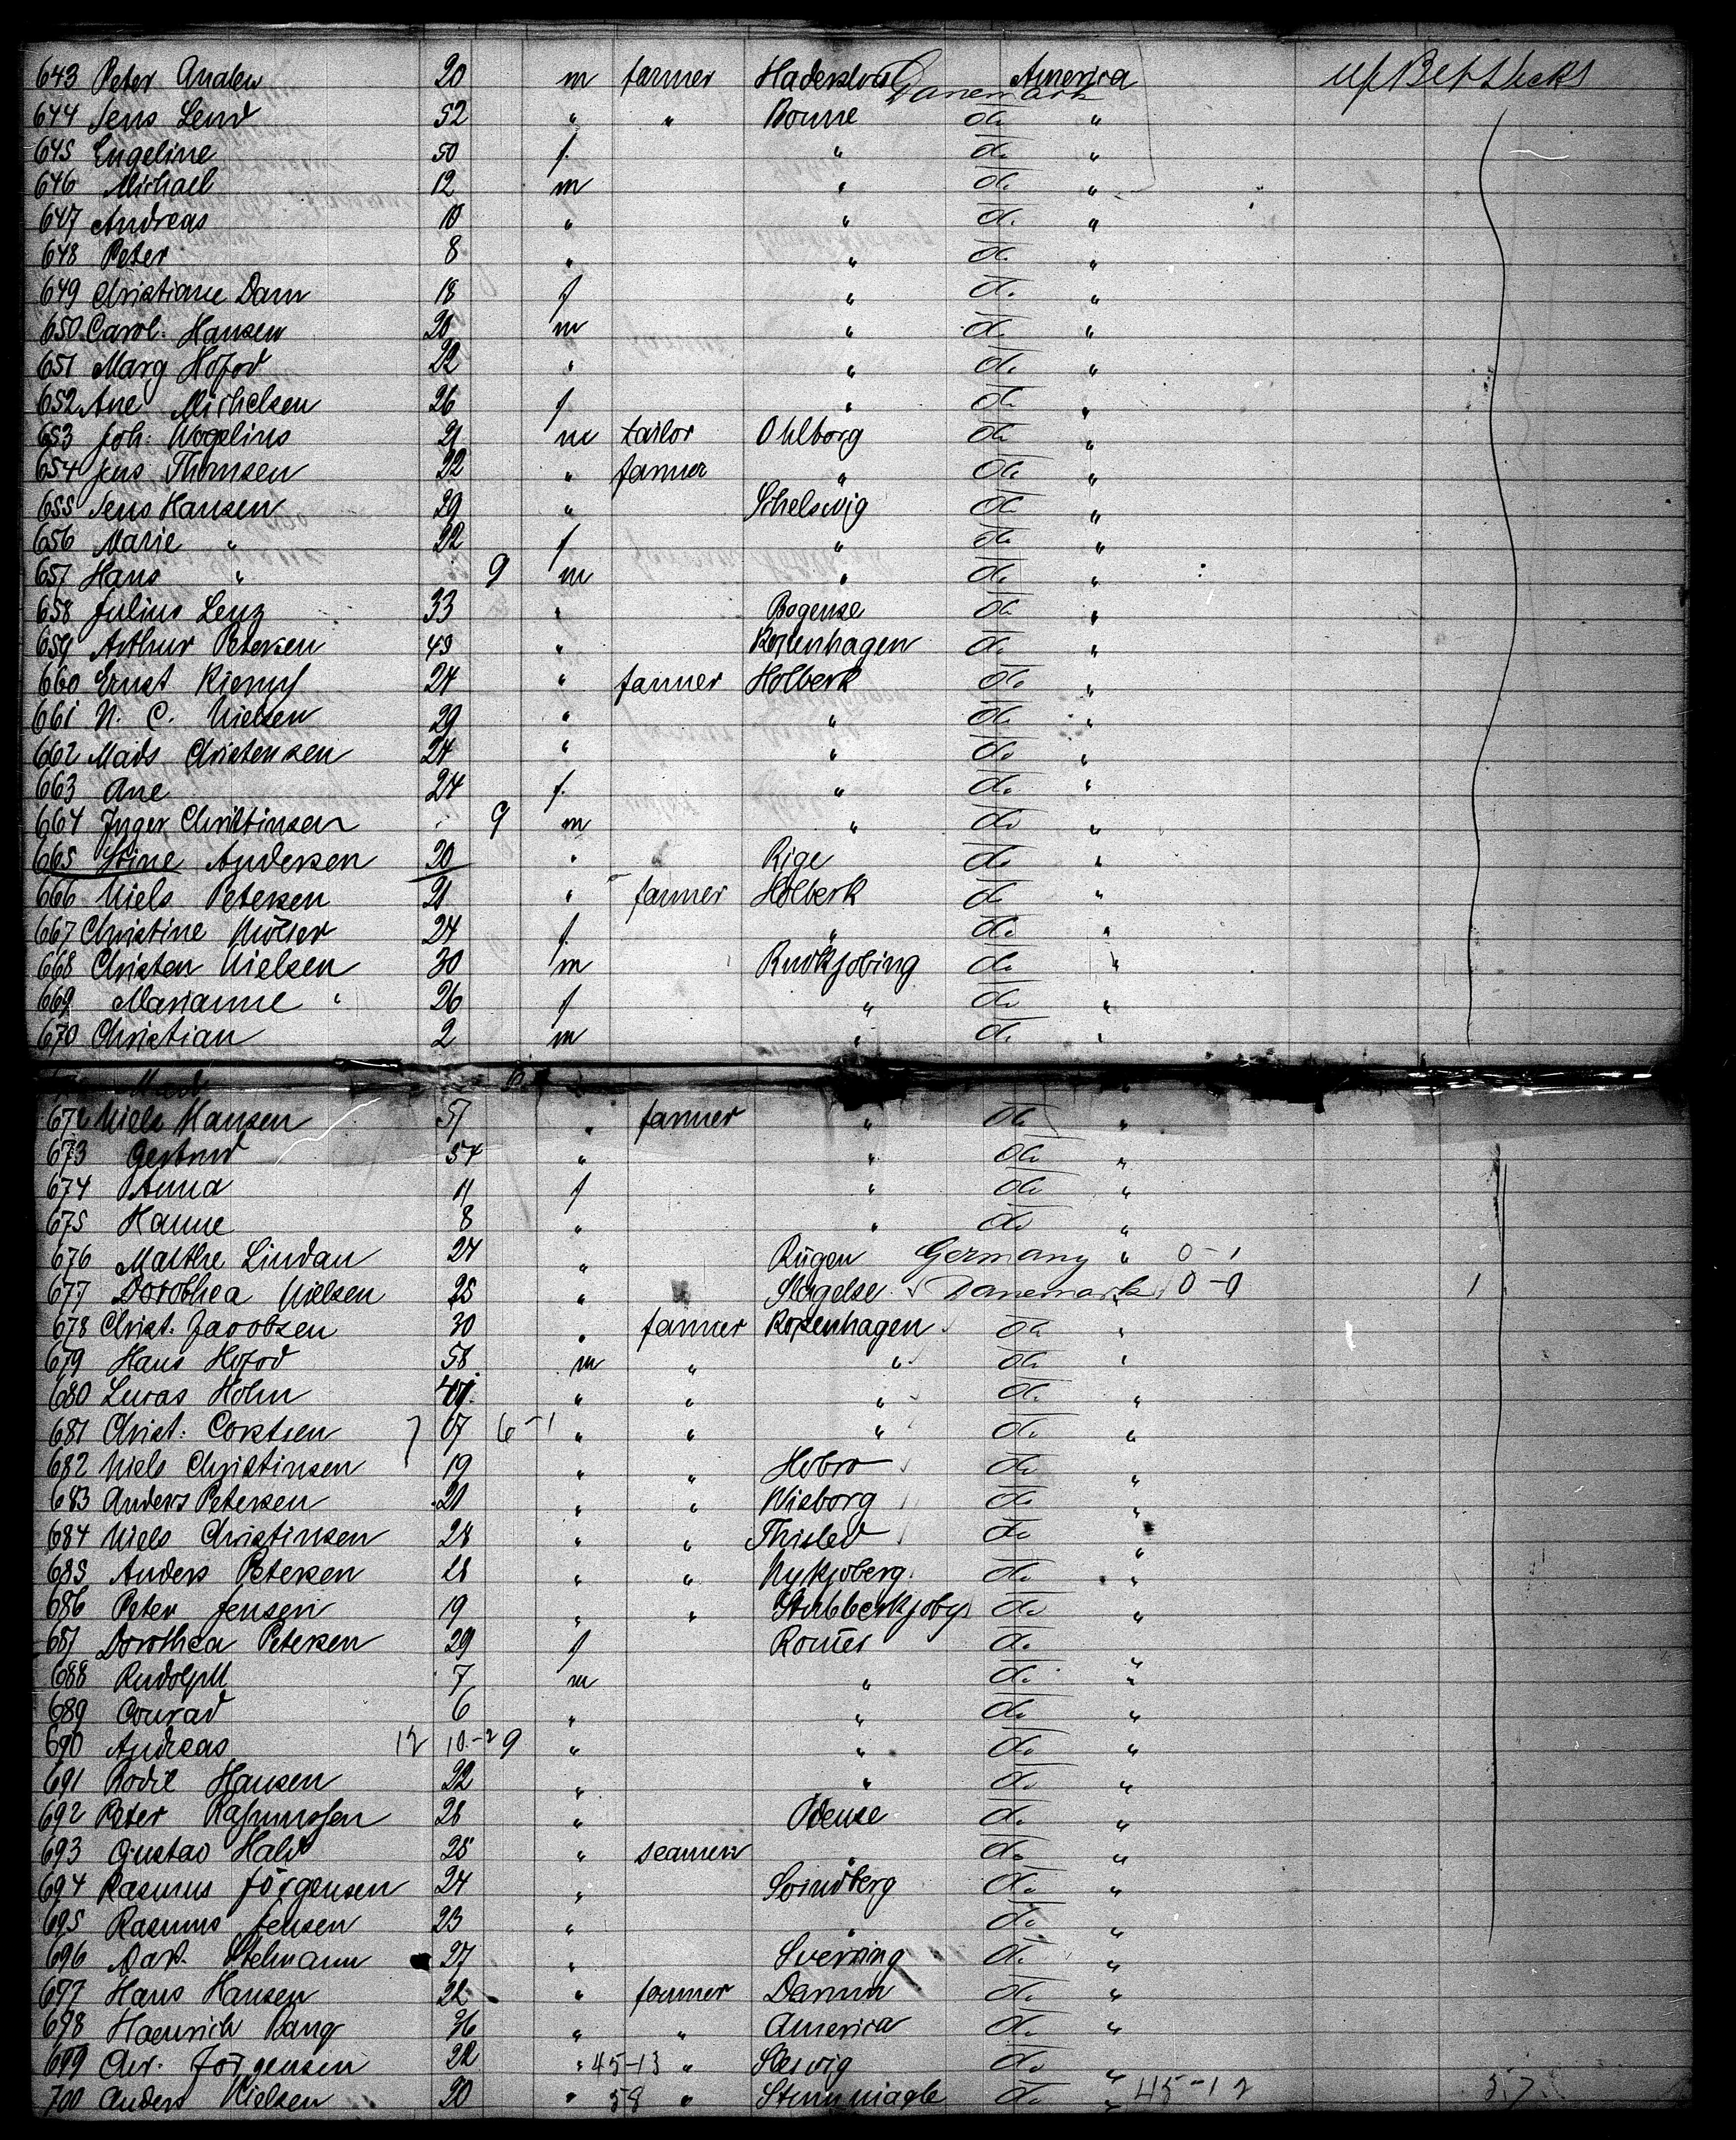 643 Peter Analen 20 m farmer Haderslev Danemark America up Bet Decks
644 Jens Lend 52 " " Bonne do "
645 Engeline 50 f. " do "
646 Michael 12 m " do "
647 Andreas 10 " " do "
648 Peter 8 " " do "
649 Christiane Dam 18 f " do "
650 Carol. Hansen 20 m " do "
651 Marg Hofod 22 " " do "
652 Ane Michelsen 26 f " do "
653 Joh. Wogelius 21 m tailor Ohlborg do "
654 Jens Thomsen 22 " farmer " do "
655 Jens Hansen 29 " Schelswig do "
656 Marie " 22 f " do "
657 Hans " 9 m " do "
658 Julius Lenz 33 " Bogense do "
659 Arthur Petersen 49 " Kopenhagen do "
660 Ernst 24 " farmer Holberk do "
661 N. C. Nielsen 29 " " do "
662 Mads Christensen 24 " " do "
663 Ane 24 f. " do "
664 Inger Christinsen 9 m " do "
665 Stine Andersen 20 " Rige do "
666 Niels Petersen 21 " farmer Holberk do "
667 Christine Möller 24 f. " do "
668 Christen Nielsen 30 m Rudkjobing do "
669 Marianne " 26 f " do "
670 Christian 2 m " do "
672 Niels Hansen 57 " farmer " do "
673 Gertrud 54 " " do "
674 Anna 11 f " do "
675 Hanne 8 " " do "
676 Malthe Lindau 24 " Rügen Germany " 0-1
677 Dorothea Nielsen 25 " Slagelse Danemark 0-0 1
678 Christ. Jacobsen 30 " farmer Kopenhagen do "
679 Hans Hofod 58 m " " do "
680 Lucas Holm " " " do "
681 Christ. Corstsen 67 6-1 " " " do "
682 Niels Christinsen 19 " " Hobro do "
683 Anders Petersen 21 " " Wisborg do "
684 Niels Christinsen 28 " " Thisled do "
685 Anders Petersen 28 " " Nykjoberg do "
686 Peter Jensen 19 " " Stubberkjoby do "
687 Dorothea Petersen 29 f Romer do "
688 Rudolph 7 m " do "
689 Conrad 6 " " do "
690 Andreas 12 10-2 9 " " do "
691 Bodil Hansen 22 " " do "
692 Peter Rasmussen 28 " Odense do "
693 Gustav Hald 28 " seamen " do "
694 Rasmus Jörgensen 24 " Svindberg do "
695 Rasmus Jensen 23 " " do "
696 Stelmann 27 " do "
697 Hans Hansen 22 " farmer Damm do "
698 Haenrich Bang 36 " " America do "
699 Chr. Jörgensen 22 " 45-13 " Slesvig do "
700 Anders Nielsen 20 " 58 " do " 45-12 57.